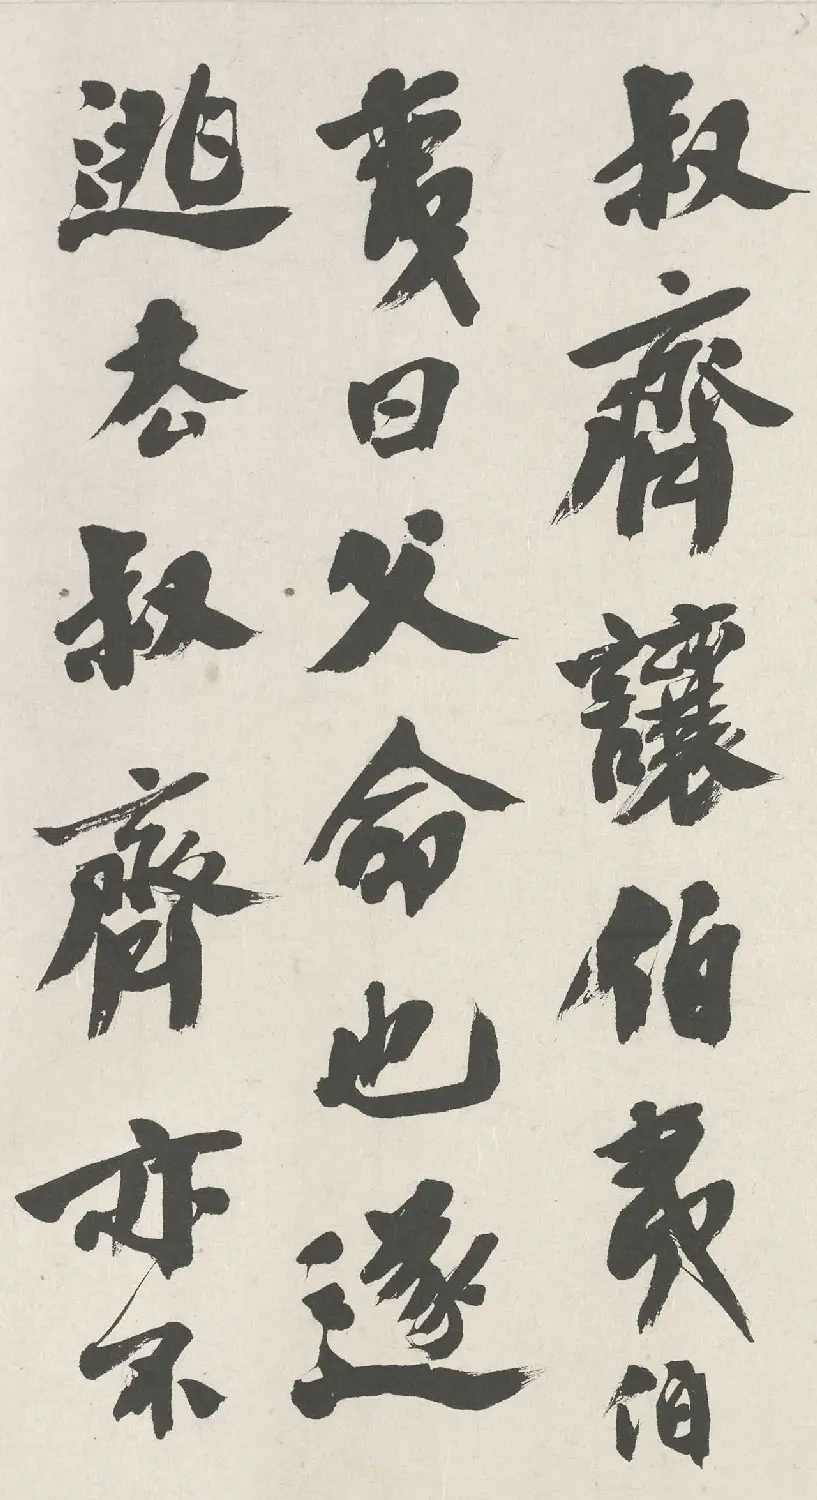 叔齊讓伯夷伯
夷曰父命也遂
逃去叔齊亦不